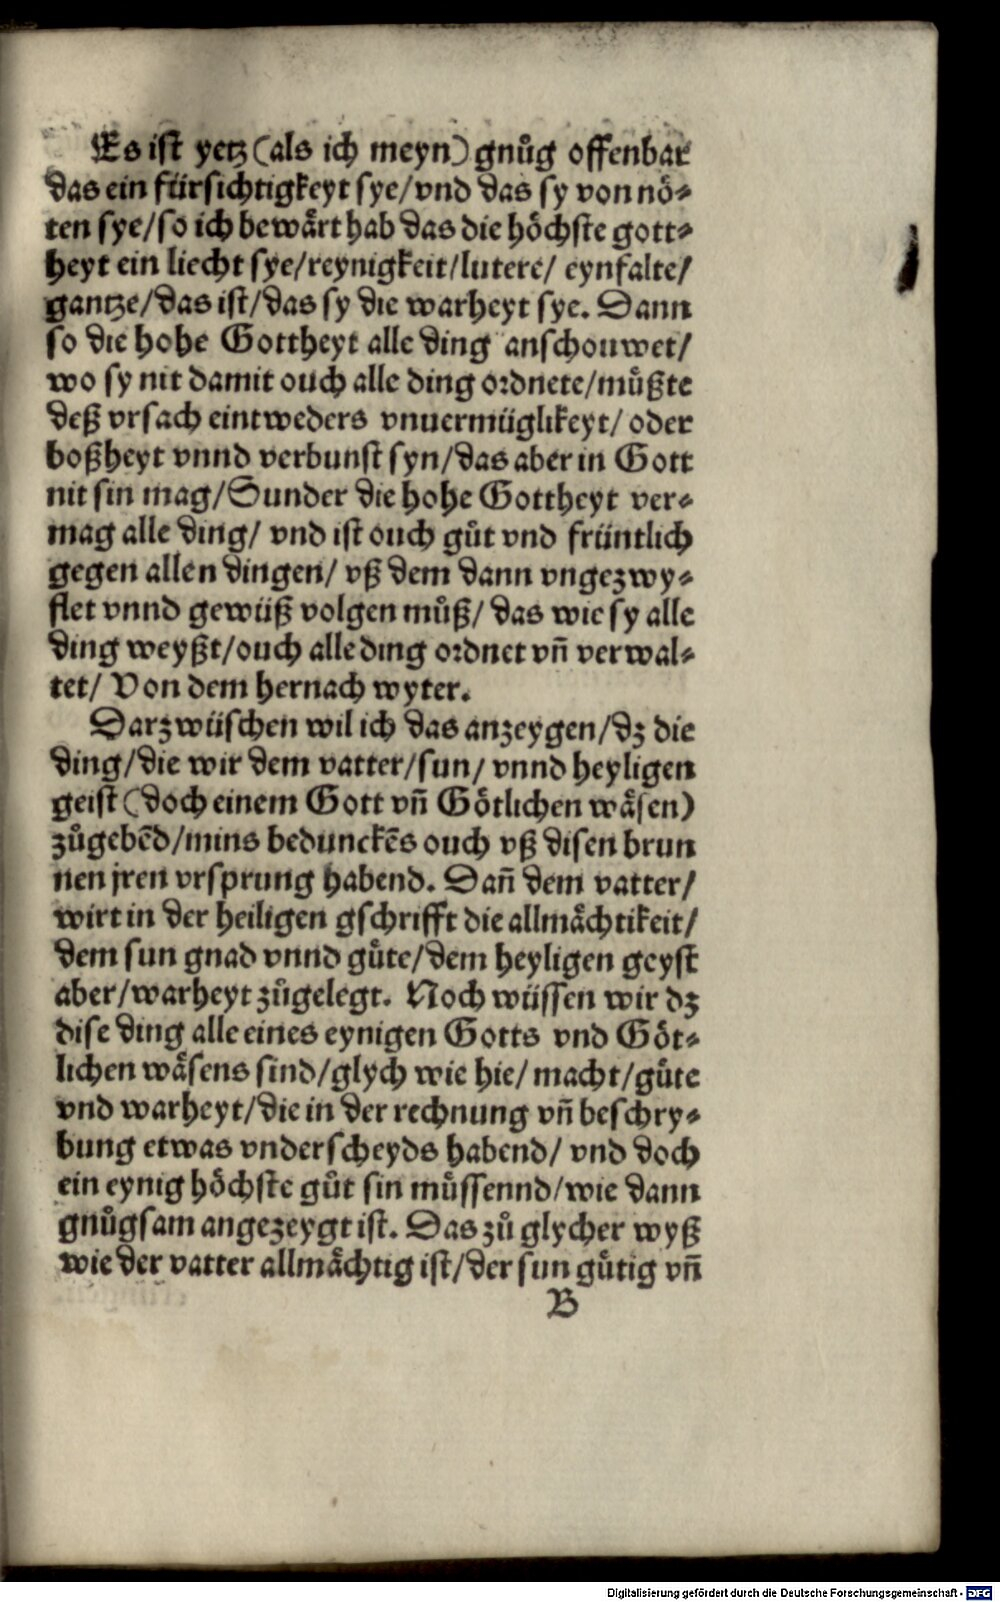 Es ist yetz (als ich meyn) gnuͦg offenbar
das ein fürsichtigkeyt sye/vnd das sy von noͤ⸗
ten sye/so ich bewaͤrt hab das die hoͤchste gott⸗
heyt ein liecht sye/reynigkeit/lutere/ eynfalte/
gantze/das ist/das sy die warheyt sye. Dann
so die hohe Gottheyt alle ding anschouwet/
wo sy nit damit ouch alle ding ordnete/muͤßte
deß vrsach eintweders vnuermüglikeyt/ oder
boßheyt vnnd verbunst syn/das aber in Gott
nit sin mag/Sunder die hohe Gottheyt ver⸗
mag alle ding/ vnd ist ouch guͦt vnd früntlich
gegen allen dingen/ vß dem dann vngezwy⸗
flet vnnd gewüß volgen muͦß/ das wie sy alle
ding weyßt/ouch alle ding ordnet vn̄ verwal⸗
tet/ Von dem hernach wyter.
Darzwüschen wil ich das anzeygen/dz die
ding/die wir dem vatter/sun/ vnnd heyligen
geist (doch einem Gott vn̄ Goͤtlichen waͤsen)
zuͦgebēd/mins bedunckēs ouch vß disen brun
nen jren vrsprung habend. Dan̄ dem vatter/
wirt in der heiligen gschrifft die allmaͤchtikeit/
dem sun gnad vnnd guͤte/dem heyligen geyst
aber/warheyt zuͦgelegt. Noch wüssen wir dz
dise ding alle eines eynigen Gotts vnd Goͤt⸗
lichen waͤsens sind/glych wie hie/ macht/guͤte
vnd warheyt/die in der rechnung vn̄ beschry⸗
bung etwas vnderscheyds habend/ vnd doch
ein eynig hoͤchste guͦt sin muͤssennd/wie dann
gnuͦgsam angezeygt ist. Das zuͦ glycher wyß
wie der vatter allmaͤchtig ist/der sun guͤtig vn̄
B
Digitalisierung gefördert durch die Deutsche Forschungsgemeinschaft - DFG